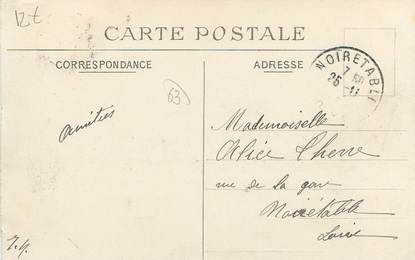 12€
CARTE POSTALE
CORRESPONDANCE
ADRESSE
NOIRETABLE
7
25
11
63
amitiés
Mademoiselle
Alice Cherre
rue de la gare
Noirétable
Loire